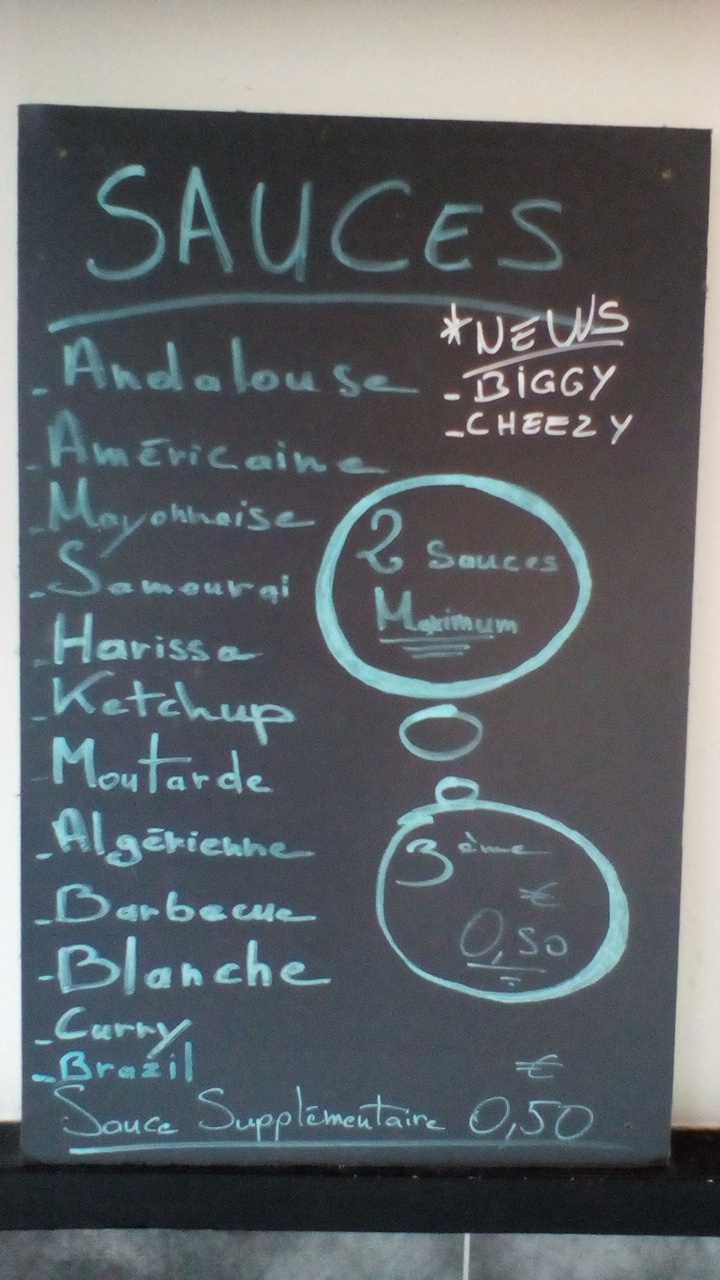 SAUCES
*NEWS
- BIGGY
- CHEEZY
- Andalouse
- Américaine
- Mayonnaise
- Samouraï
- Harissa
- Ketchup
- Moutarde
- Algérienne
- Barbecue
- Blanche
- Curry
- Brazil
2 Sauces
Maximum
3 ème
€
0,50
€
Sauce Supplémentaire 0,50